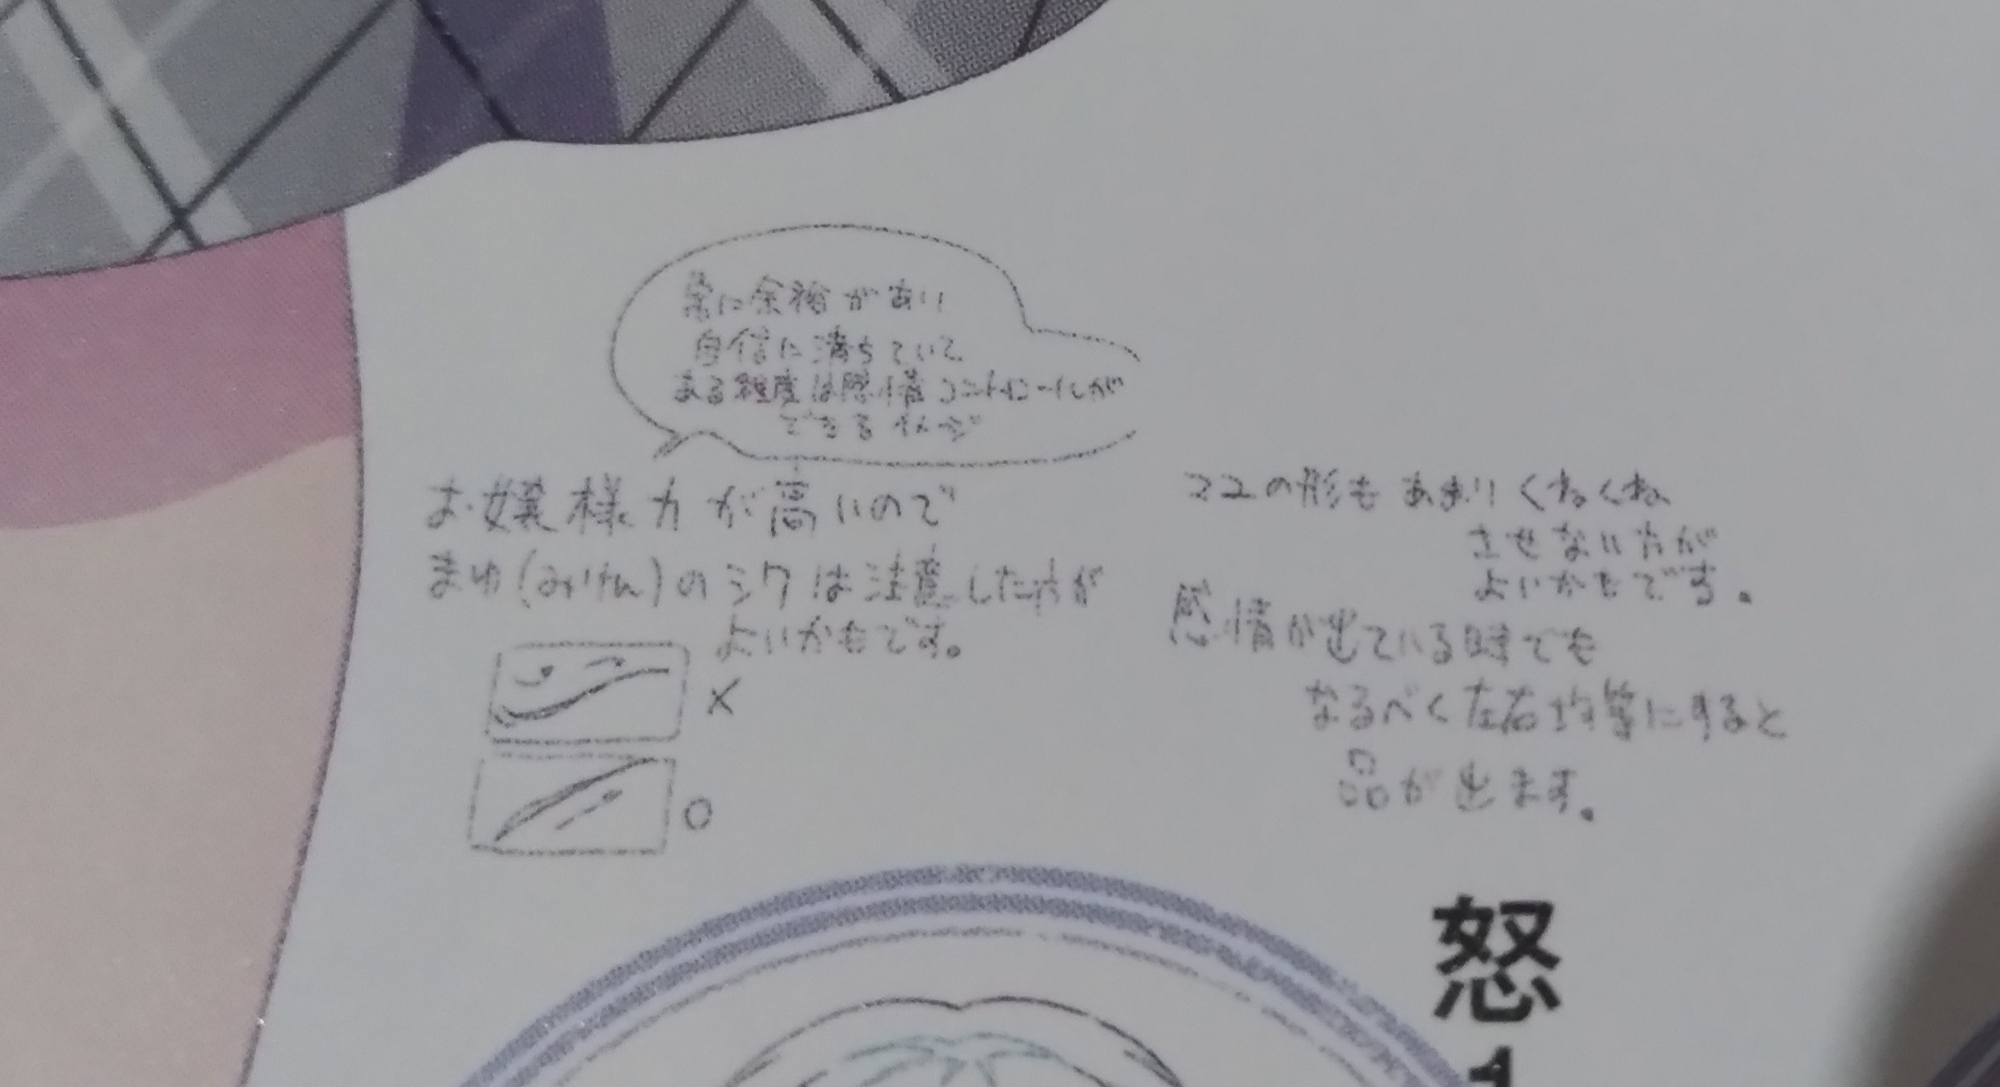 常に余裕があり
自信に満ちていて
ある程度は感情コントロールが
できるイメージ
お嬢様力が高いので
まゆ(みけん)のシワは注意した方が
よいかもです。
×
○
マユの形もあまりくねくね
させない方が
よいかもです。
感情が出ている時でも
なるべく左右均等にすると
品が出ます。
怒
1